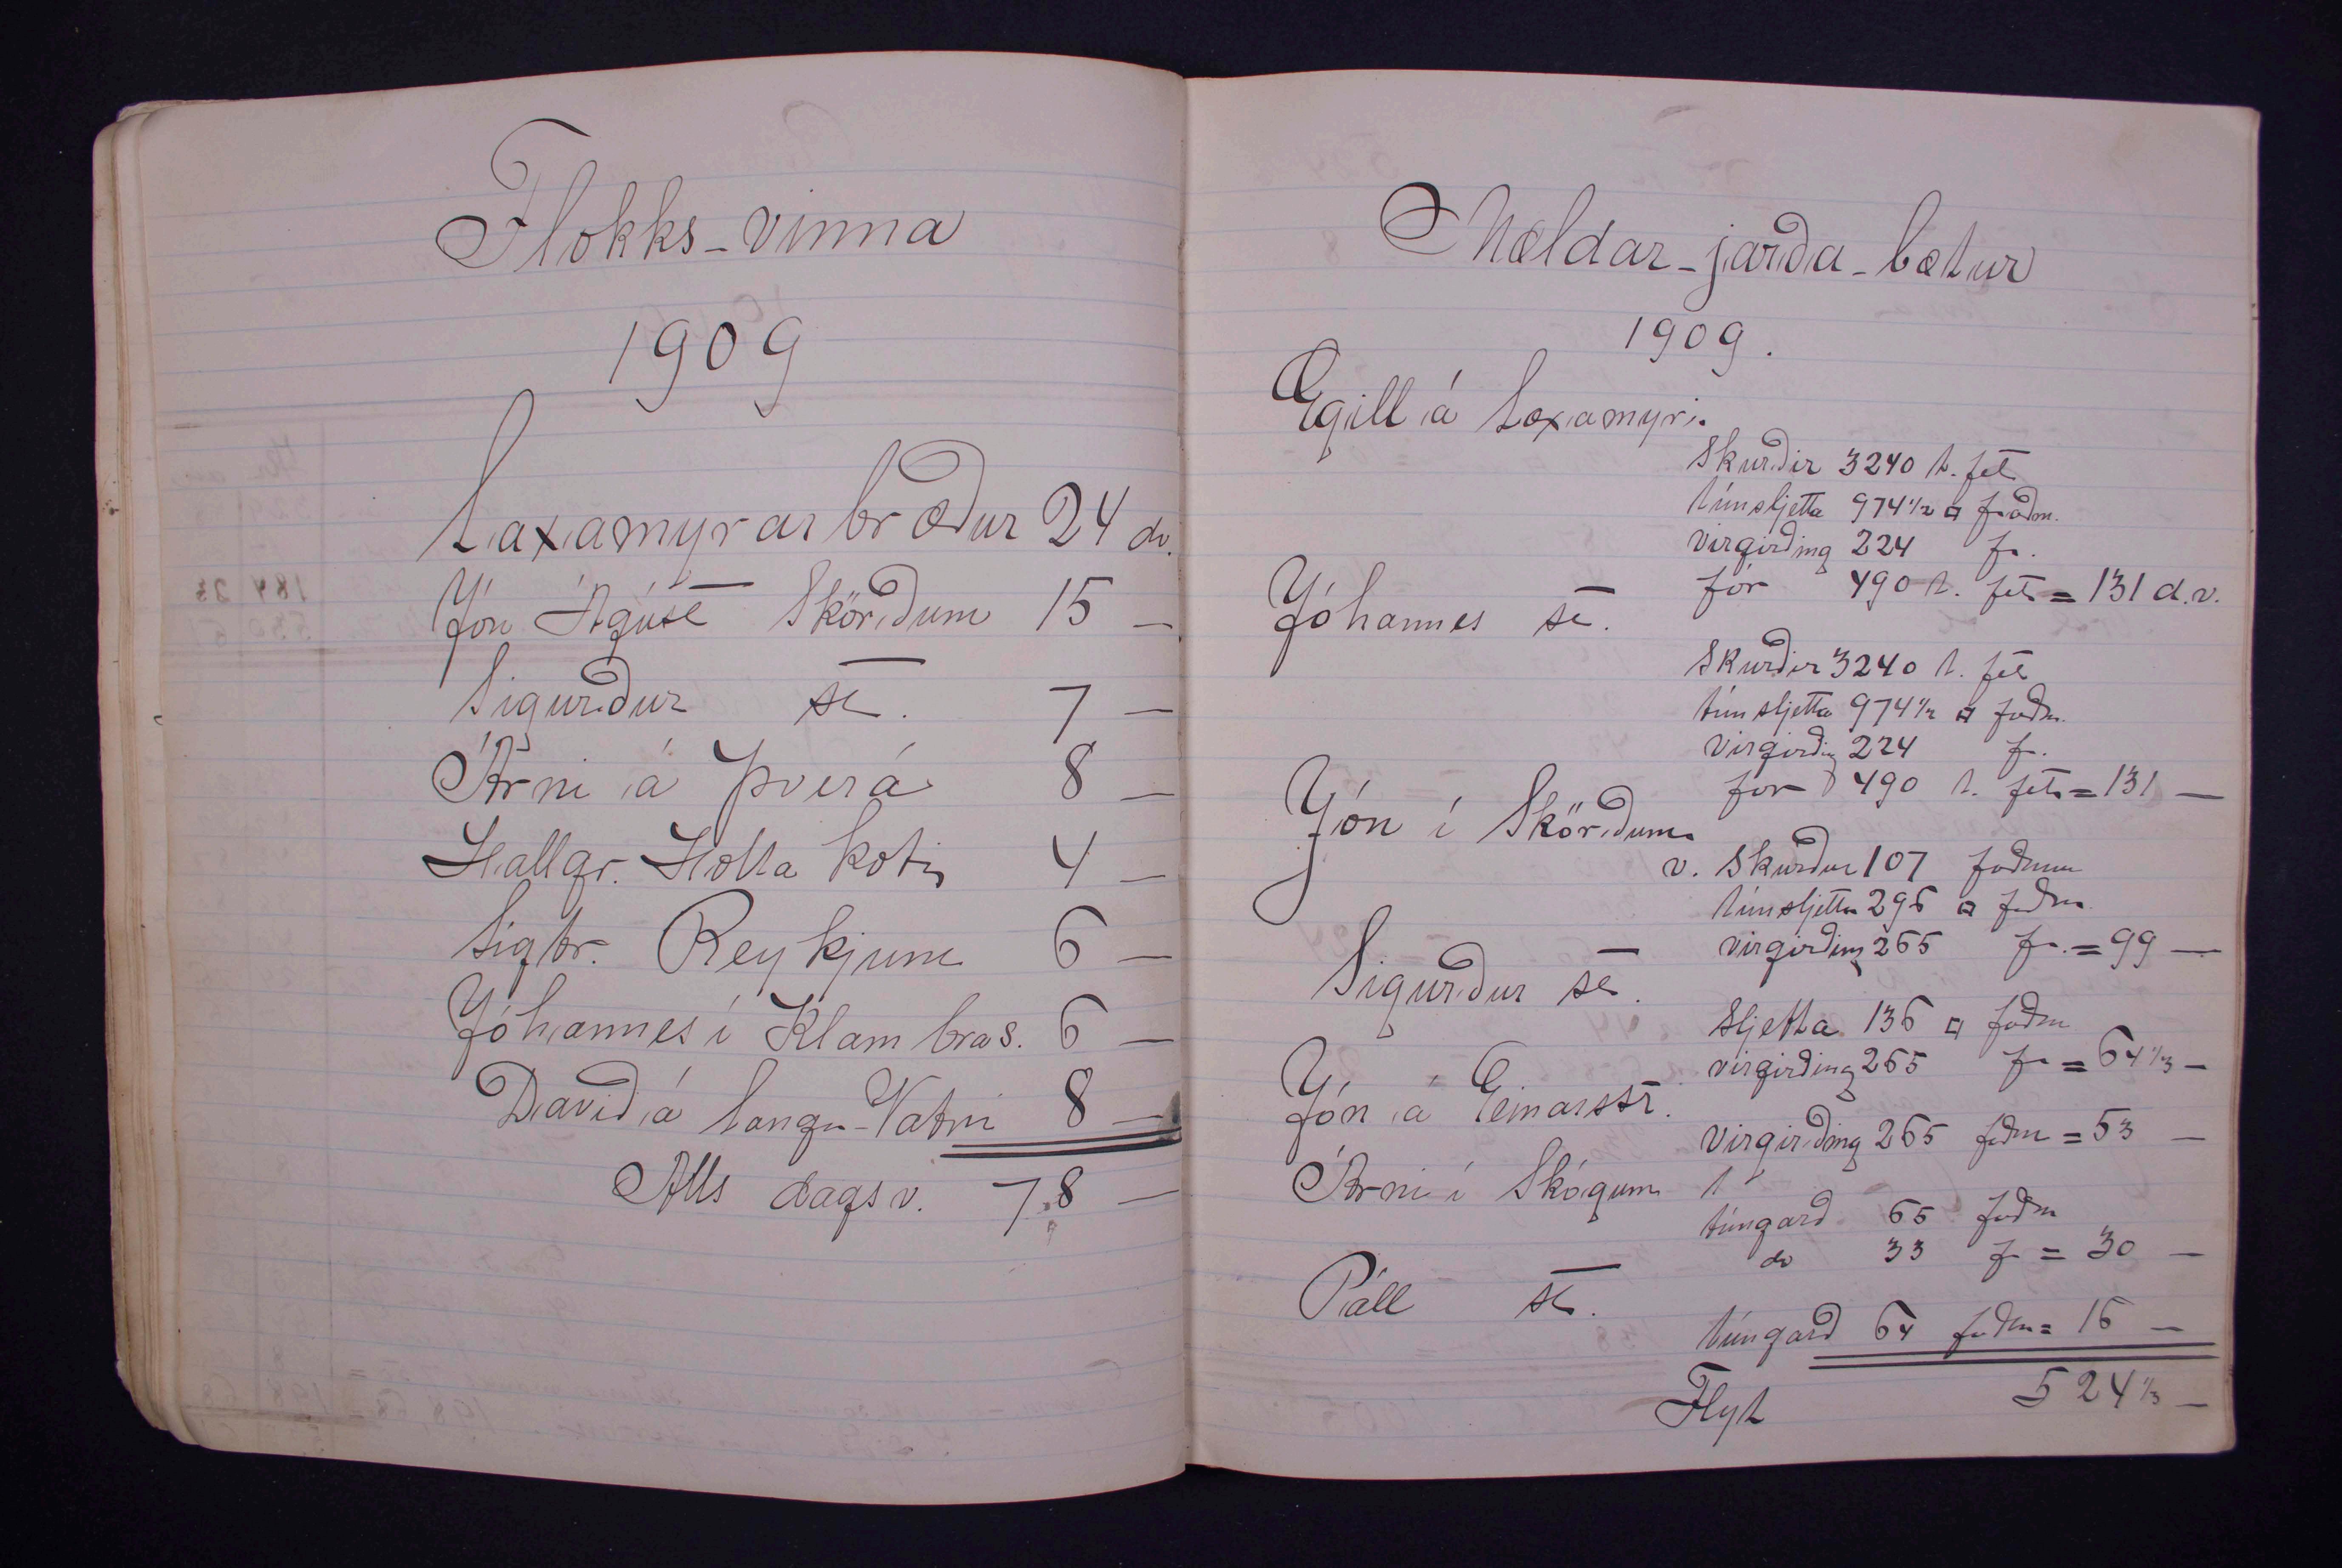 Flokks-vinna
1909
Laxamýrarbræður 24 dv.
Jón Ágúst Skörðum 15 —
Sigurður st. 7 —
Árni á Þverá 8 —
Hallgr. Holtakoti 4 —
Sigtr. Reykjum 6 —
Jóhannes í Klambras. 6 —
Davið á Langu-Vatni 8 —
Alls dagsv. 78 —
Mældar-jarða-bætur
1909.
Egill á Laxamyri.
Skurðir 3240 t. fet
túnsljetta 974 1/2 □ faðm.
virgirðing 224 f.
for 490 t. fet = 131 d.v.
Jóhannes st.
Skurðir 3240 t. fet
túnsljetta 974 1/2 □ faðm.
Virgirðing 224 f.
for 490 t. fet = 131 —
Jón í Skörðum
v. Skurður 107 faðmm
túnsljetta 296 □ faðm.
virgirðing 265 f. = 99 —
Sigurður st.
Sljetta 136 □ faðm
virgirðing 265 f = 64 1/3 —
Jón á Einarsst.
Virgirðing 265 faðm = 53 —
Árni í Skógum
túngarð 65 faðm
do 33 f = 30 —
Páll st.
túngarð 64 faðm = 16 —
Flyt 524 1/3 —